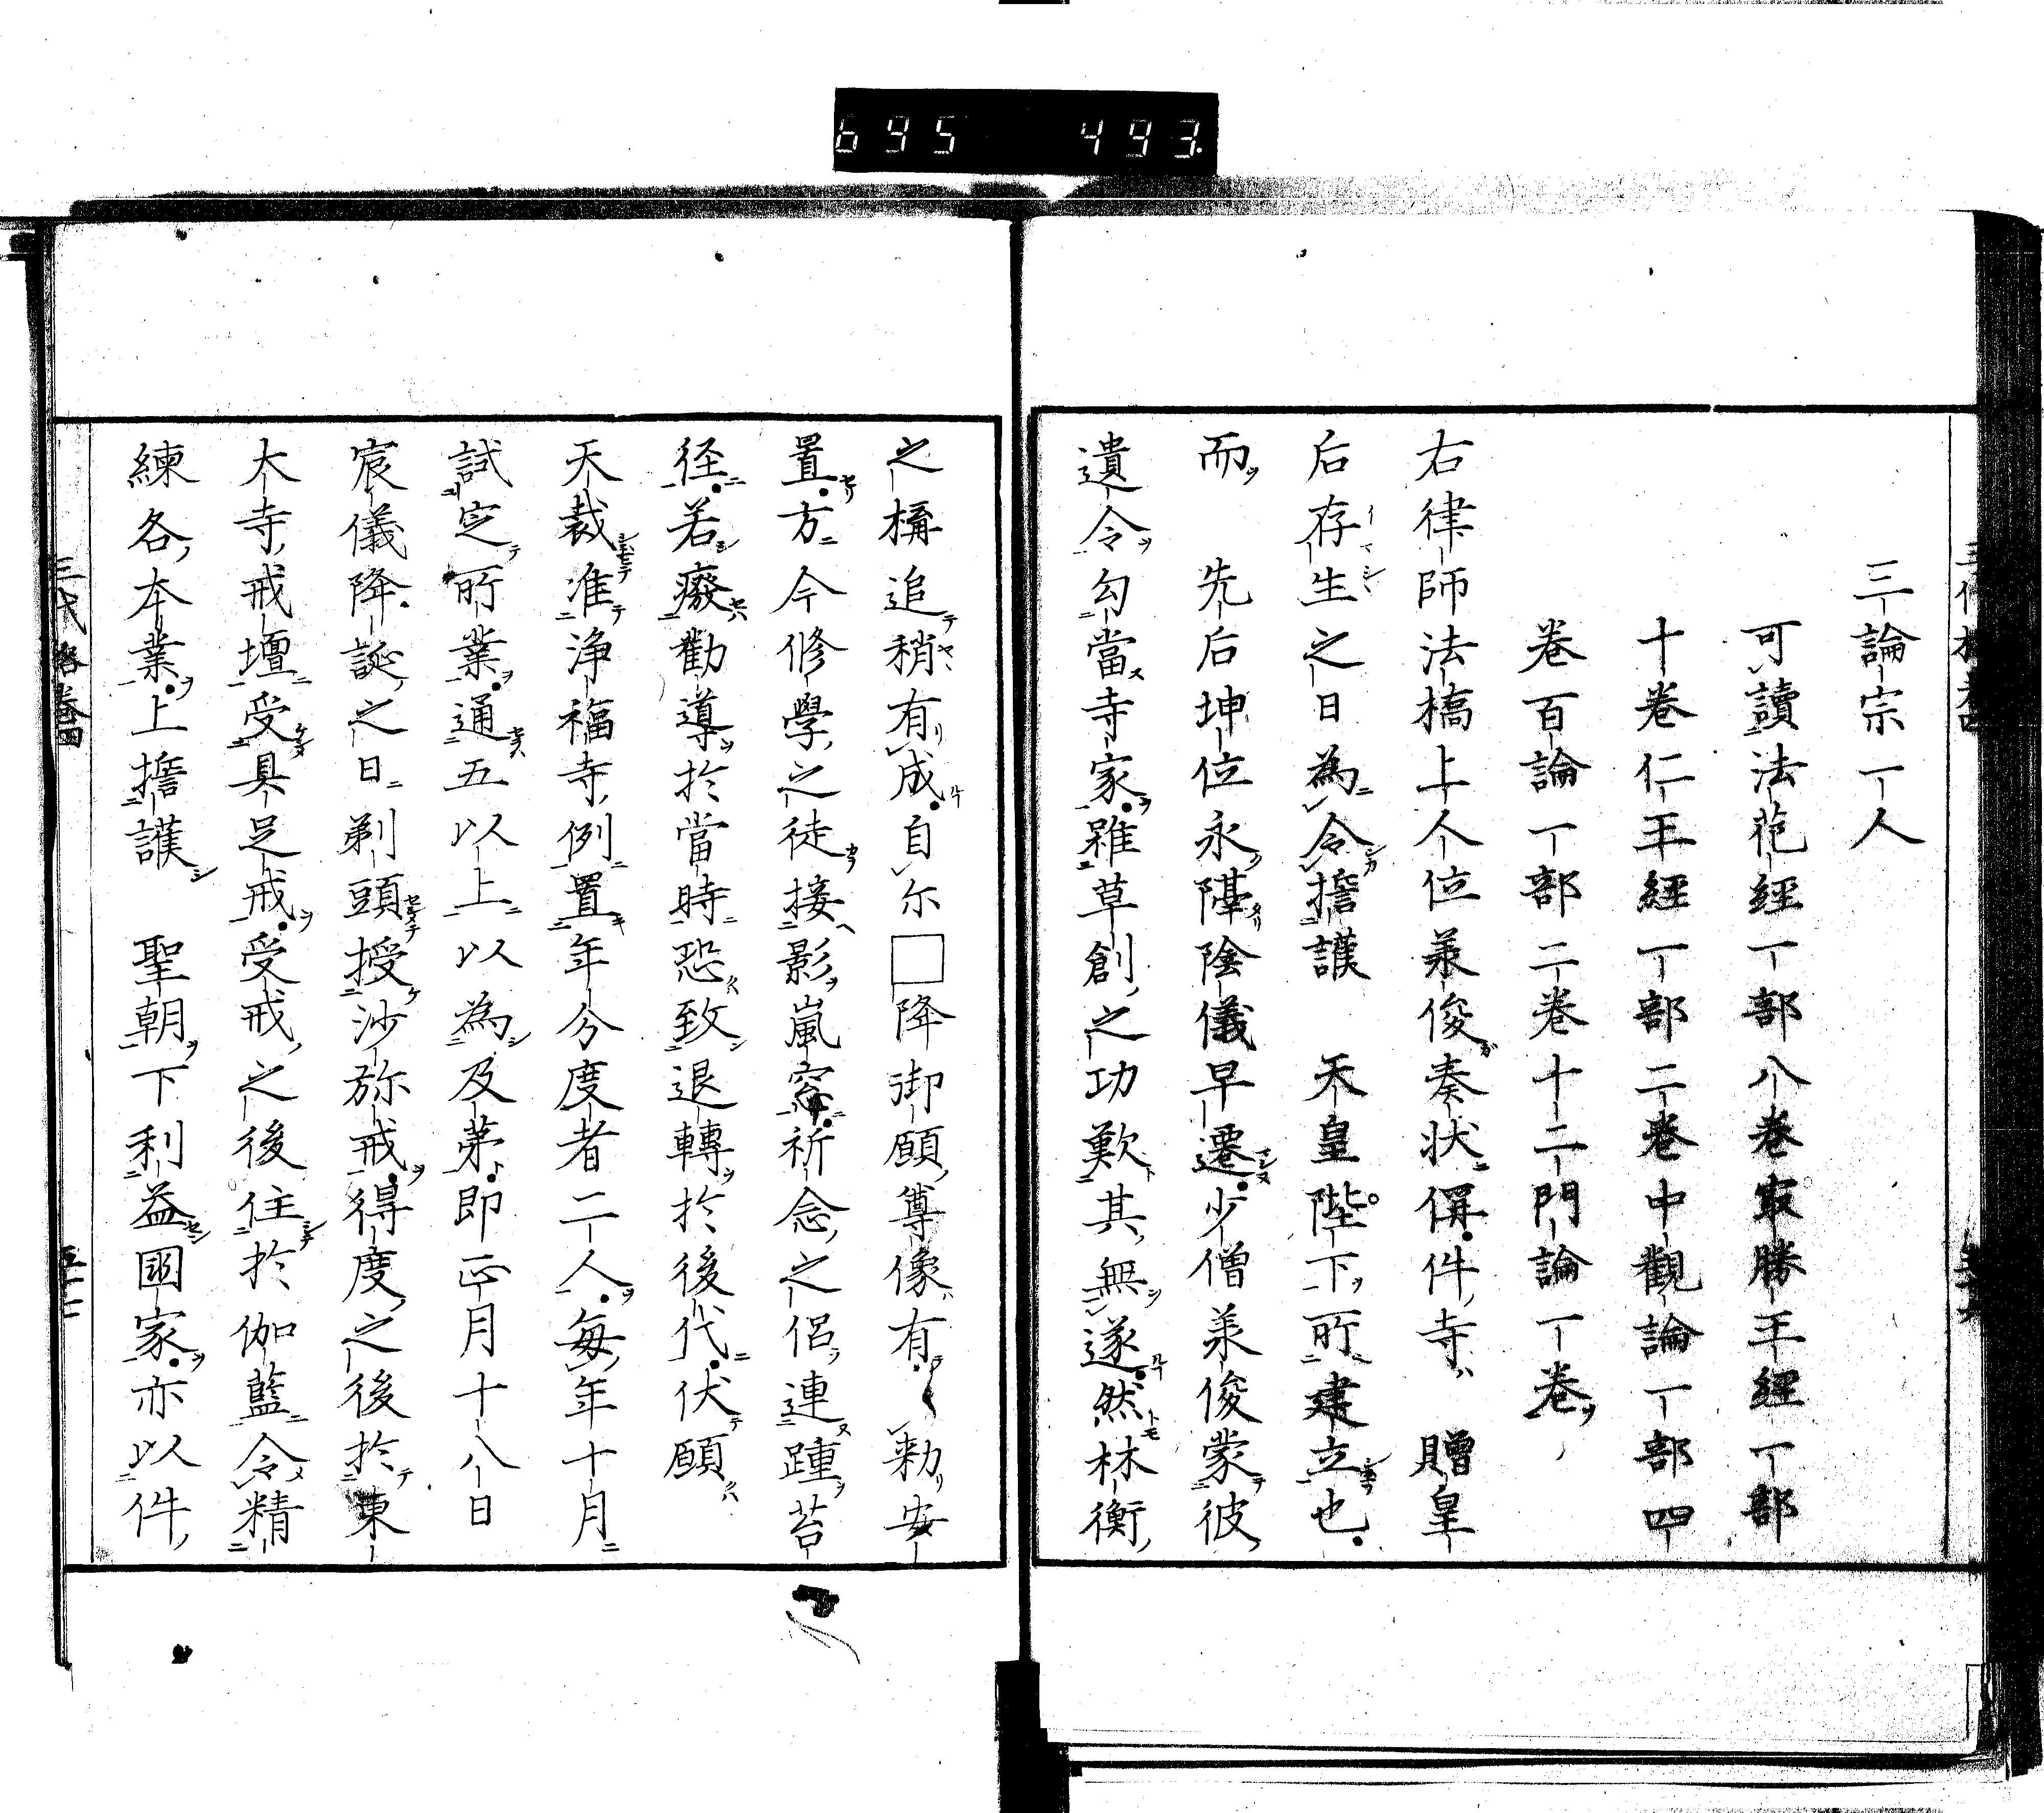 695 493.
三論宗一人
可讀法花経一部八巻最勝王経一部
十巻仁王経一部二巻中觀論一部四
巻百論一部二巻十二門論一巻
右律師法橋上人位義俊奏状偁件寺贈皇
后存生之日為令擔護 天皇陛下所建立也
而 先后坤位永隔陰儀早遷少僧義俊蒙彼
遺令勾當寺家雖草創之功歎其無遂然林衡
之構追稍有成自尓□降御願尊像有勅安
置方今修學之徒接影嵐窓祈念之侶連踵苔
径若癈勸導於當時恐致退轉於後代伏願
天裁准浄福寺例置年分度者二人毎年十月
試定所業通五以上以為及第即正月十八日
宸儀降誕之日剃頭授沙弥戒得度之後於東
大寺戒壇受具足戒受戒之後住於伽藍令精
練各本業上擔護 聖朝下利益國家亦以件
三代格巻四